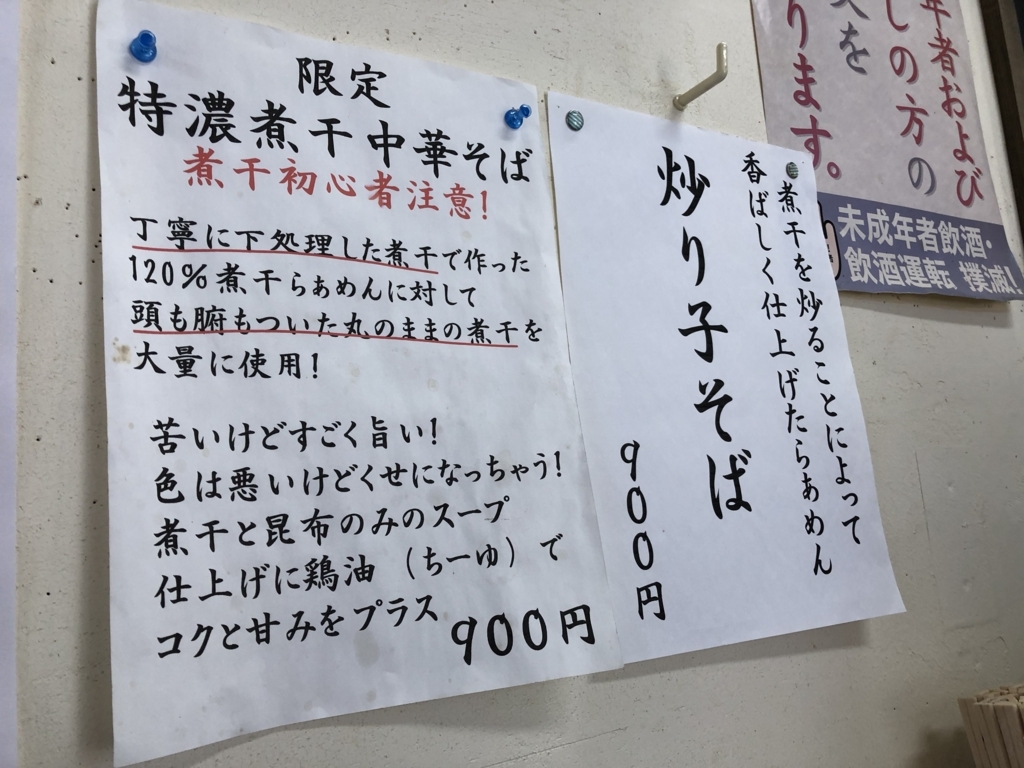 限定
特濃煮干中華そば
煮干初心者注意!
丁寧に下処理した煮干で作った
120%煮干らぁめんに対して
頭も腑もついた丸のままの煮干を
大量に使用!
苦いけどすごく旨い!
色は悪いけどくせになっちゃう!
煮干と昆布のみのスープ
仕上げに鶏油(ちーゆ)で
コクと甘みをプラス
900円
煮干を炒ることによって
香ばしく仕上げたらぁめん
炒り子そば
900円
年者および
しの方の
を
ります。
未成年者飲酒・
飲酒運転 撲滅!